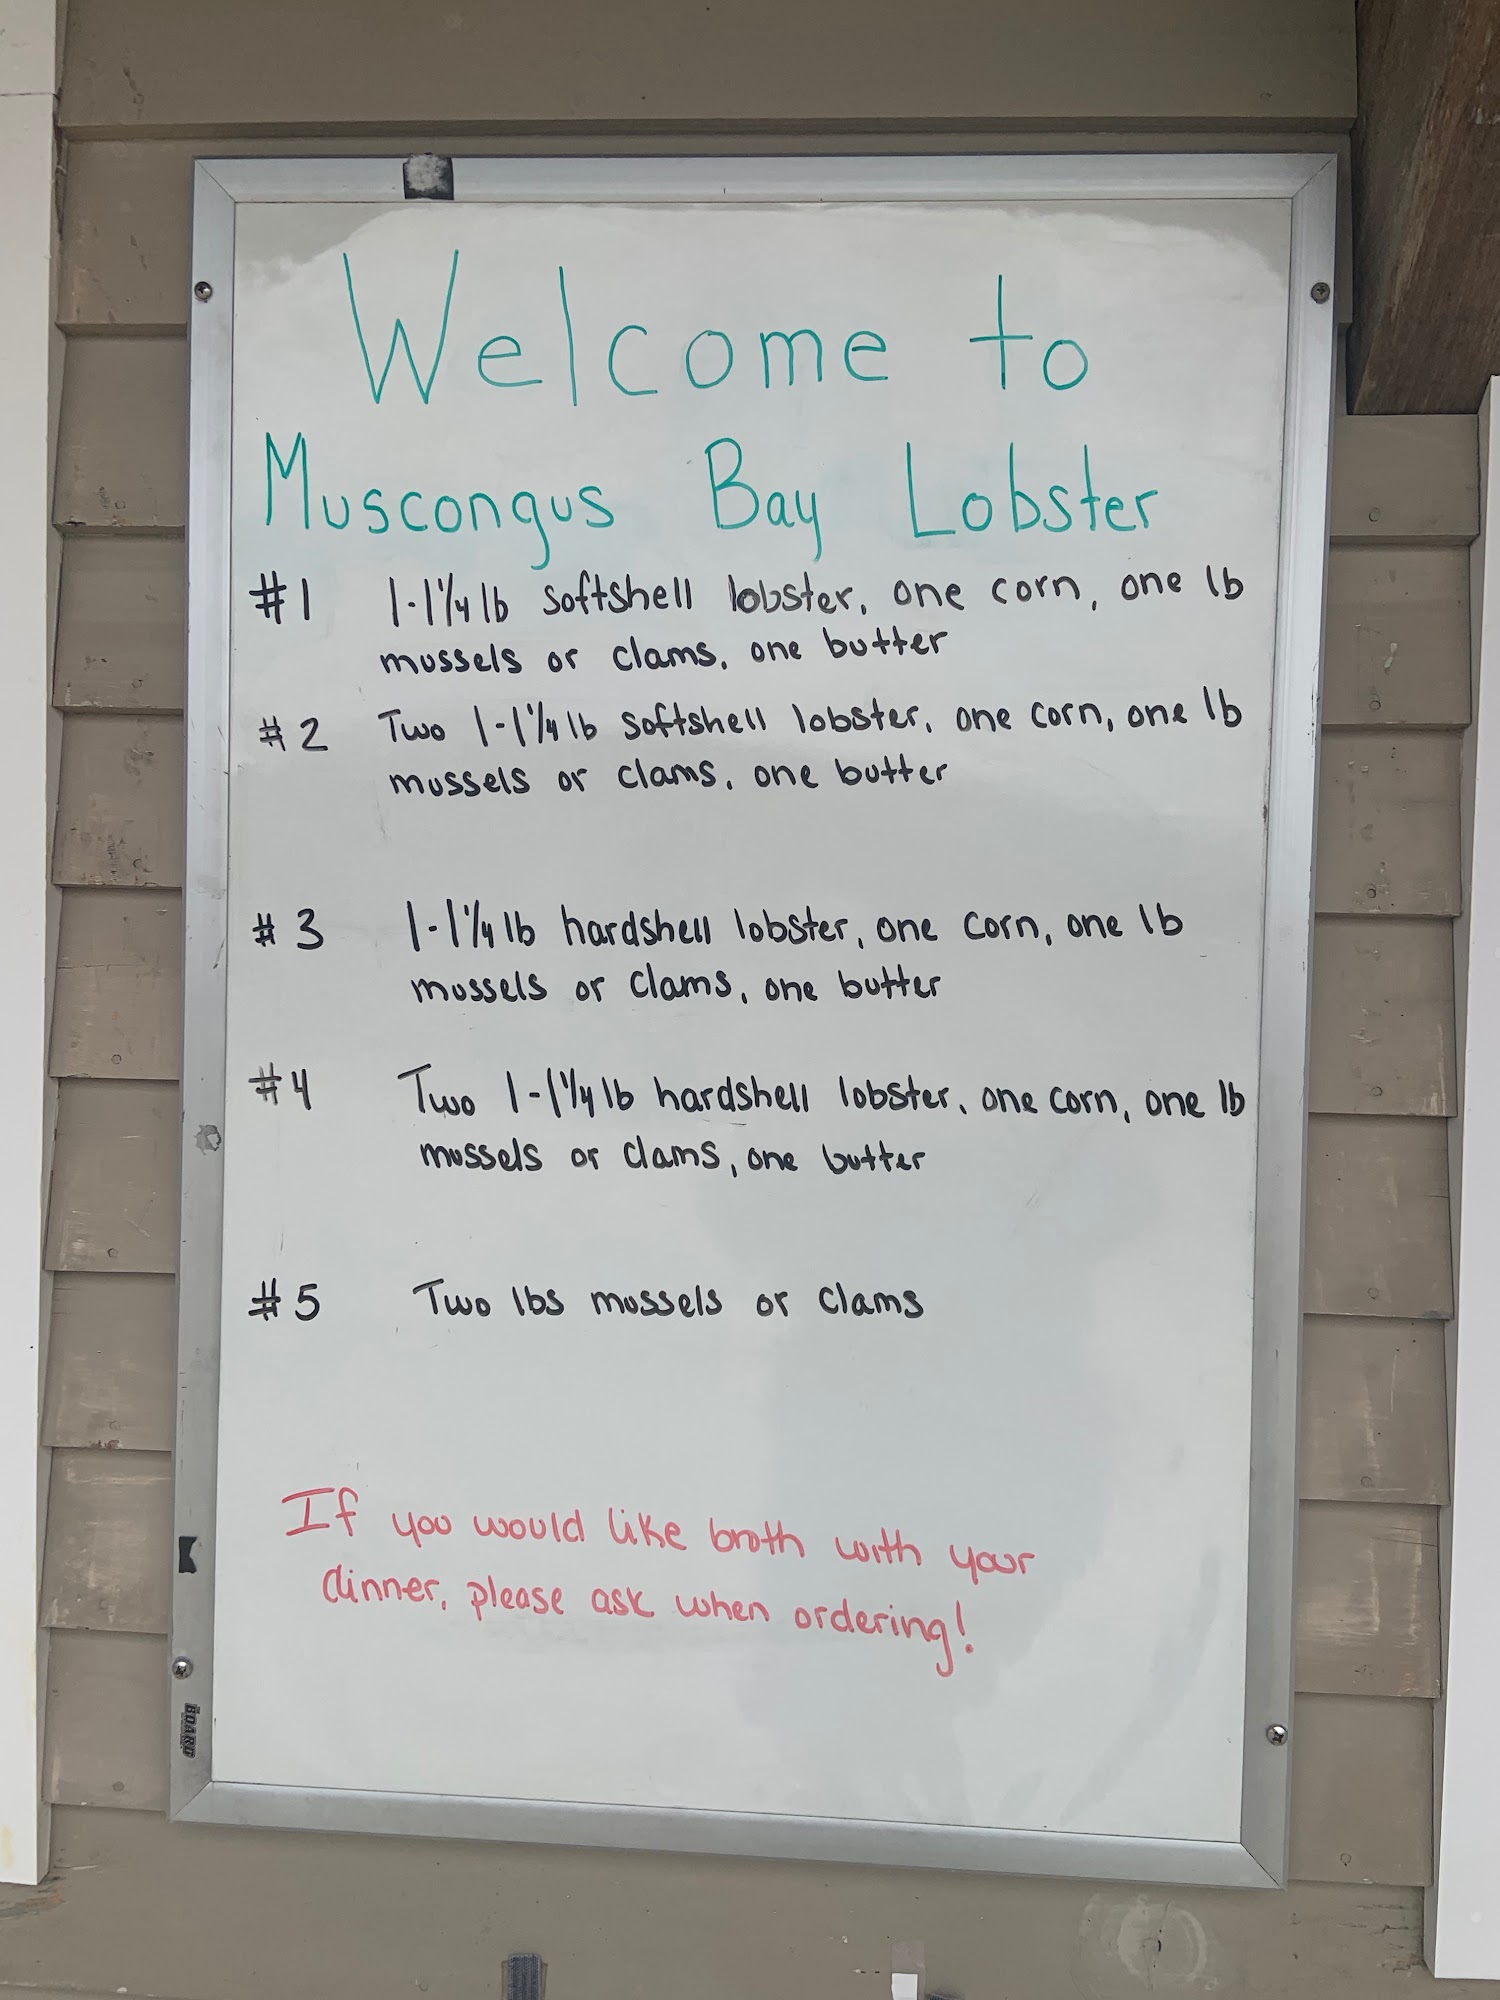 Welcome to
Muscongus Bay Lobster
#1 1-1 1/4 lb softshell lobster, one corn, one lb
mussels or clams, one butter
#2 Two 1-1 1/4 lb softshell lobster, one corn, one lb
mussels or clams, one butter
#3 1-1 1/4 lb hardshell lobster, one corn, one lb
mussels or clams, one butter
#4 Two 1-1 1/4 lb hardshell lobster, one corn, one lb
mussels or clams, one butter
#5 Two lbs mussels or clams
If you would like broth with your
dinner, please ask when ordering!
BOARD